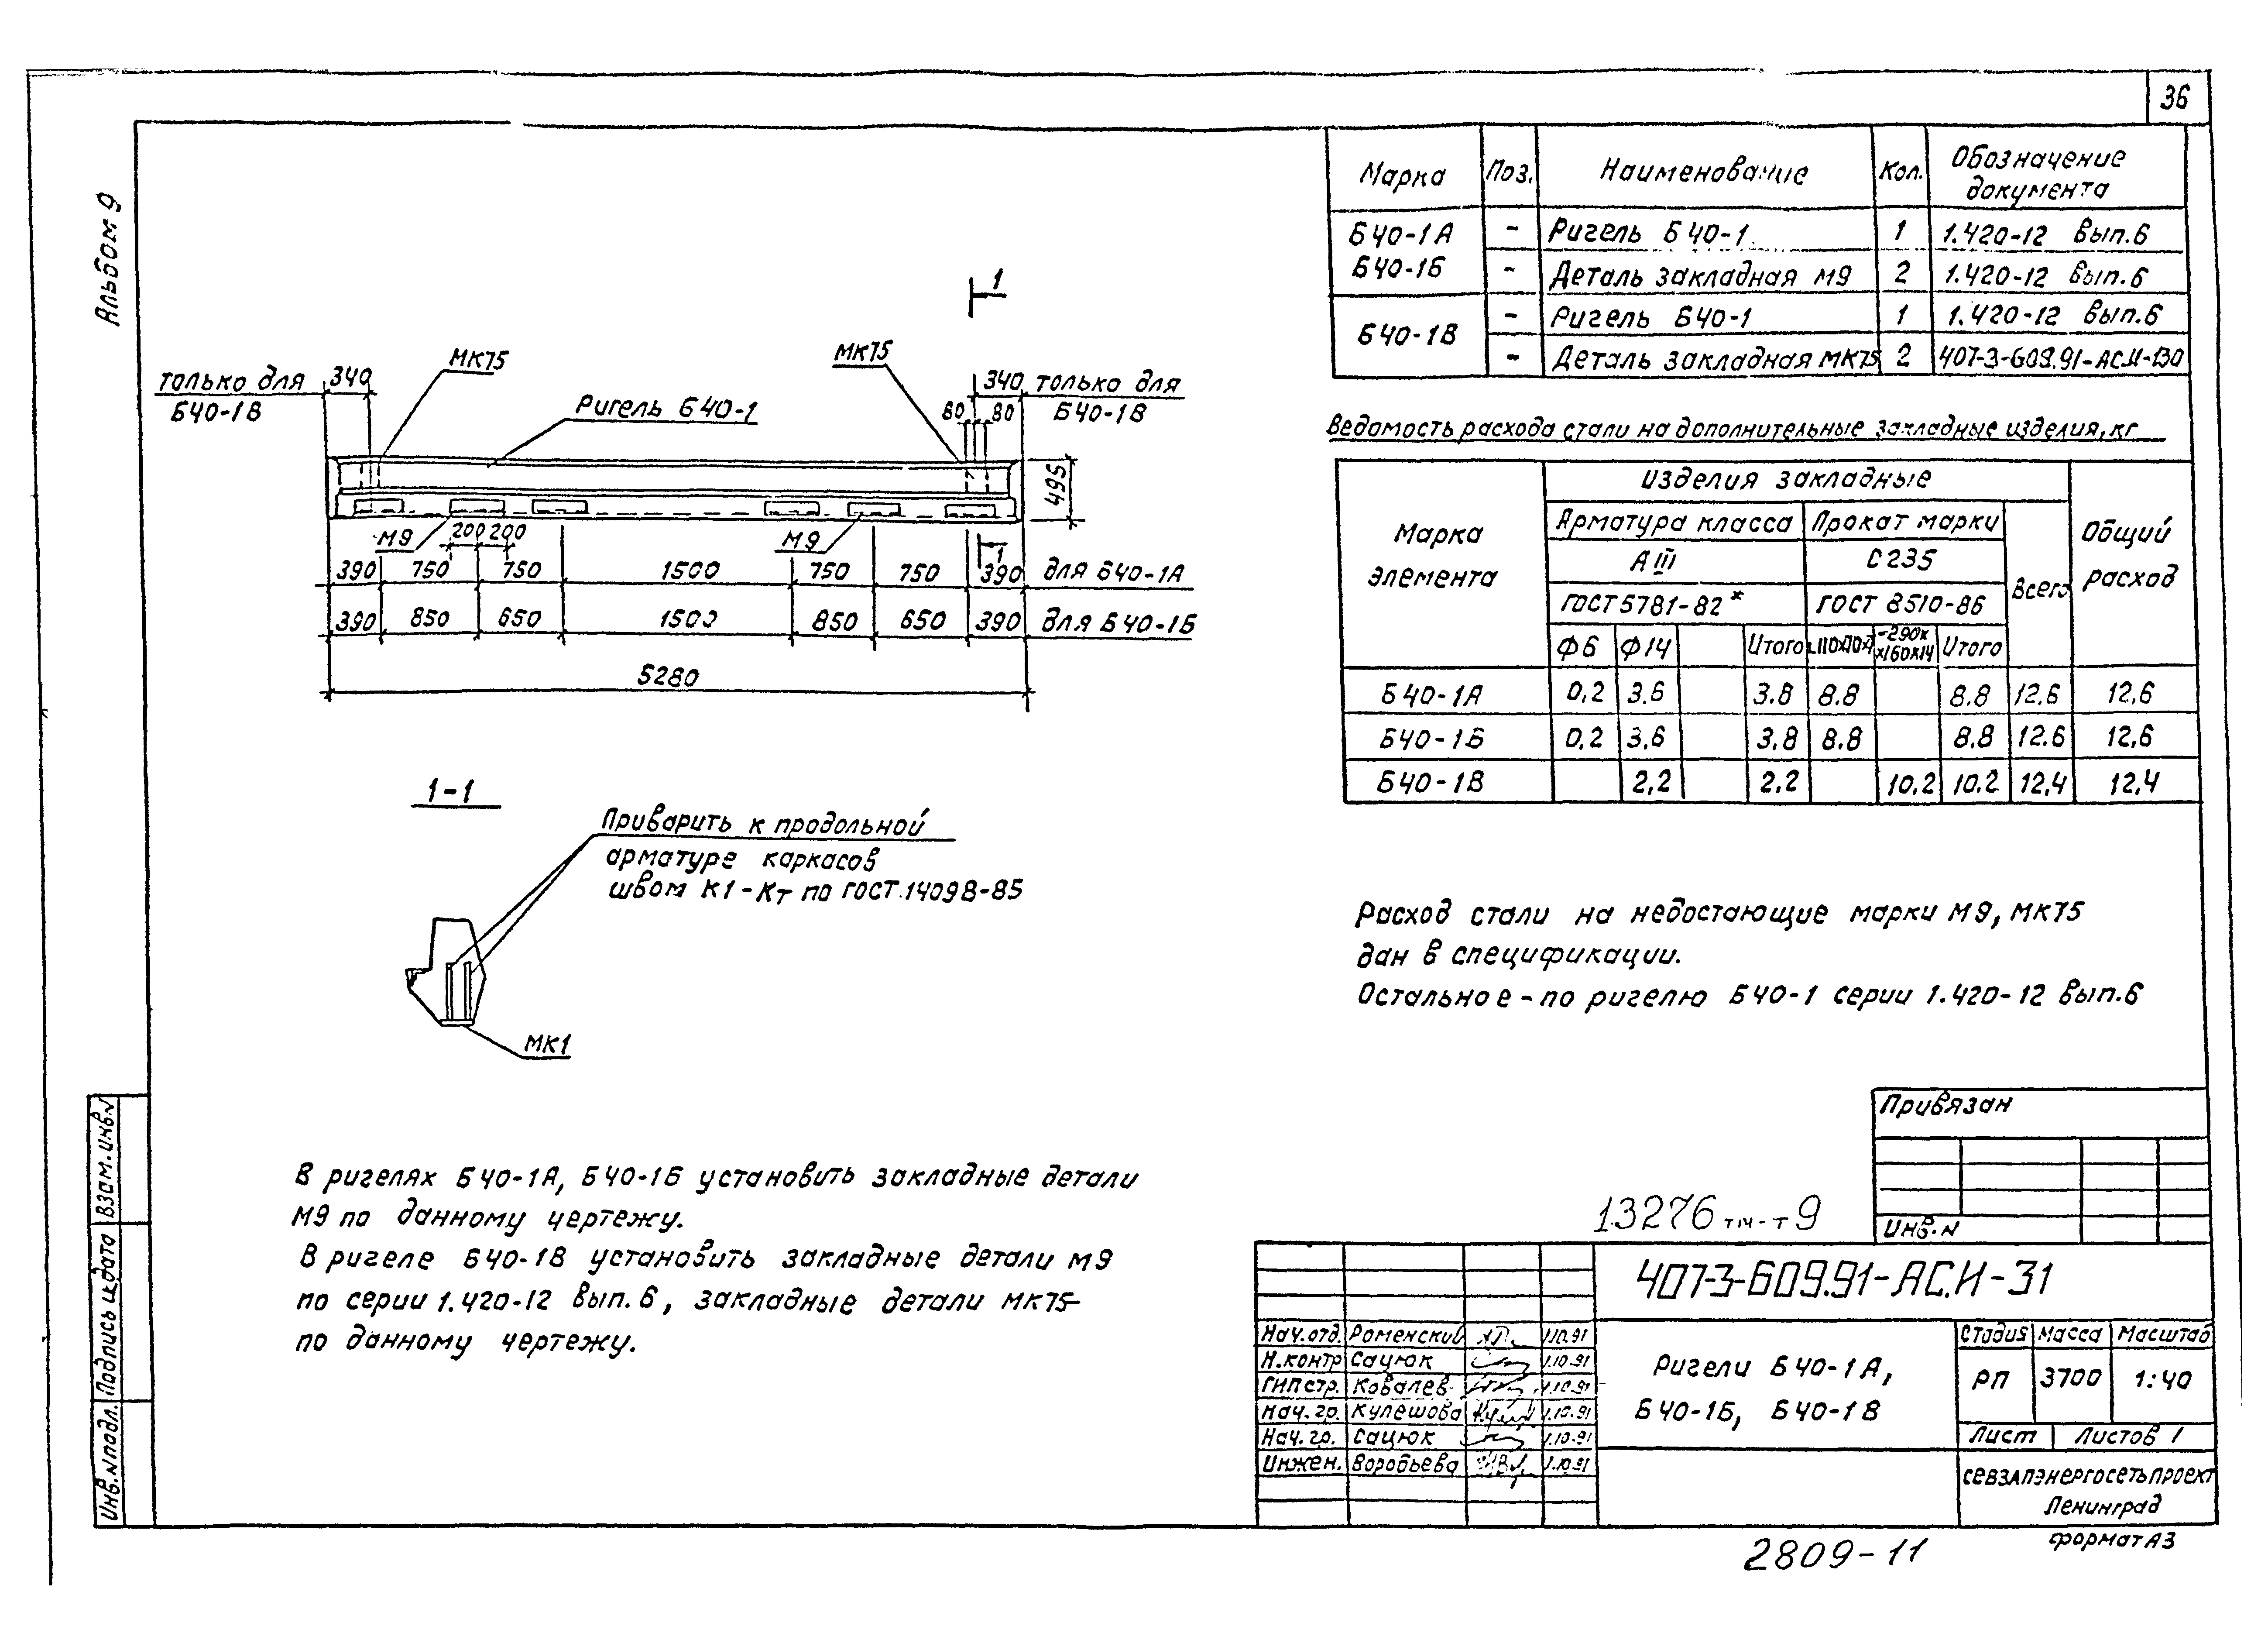 36
Альбом 9
Марка Поз. Наименование Кол. Обозначение документа
Б40-1А - Ригель Б40-1 1 1.420-12 Вып.6
Б40-1Б - Деталь закладная М9 2 1.420-12 Вып.6
Б40-1В - Ригель Б40-1 1 1.420-12 Вып.6
- Деталь закладная МК75 2 407-3-609.91-АС.И-130
1
МК75 МК75
только для 340 340 только для
Б40-1В 80 80 Б40-1В
Ригель Б40-1
495
М9 200 200 М9 1
390 750 750 1500 750 750 390 для Б40-1А
390 850 650 1500 850 650 390 для Б40-1Б
5280
Ведомость расхода стали на дополнительные закладные изделия, кг
Марка элемента Изделия закладные Общий расход
Арматура класса Прокат марки Всего
АIII С235
ГОСТ 5781-82* ГОСТ 8510-86
Ф6 Ф14 Итого -290х х160х14 Итого
Б40-1А 0,2 3.6 3.8 8.8 8.8 12.6 12,6
Б40-1Б 0,2 3,6 3,8 8.8 8,8 12.6 12,6
Б40-1В 2,2 2,2 10.2 10.2 12,4 12,4
1-1
Приварить к продольной
арматуре каркасов
швом К1-Кт по ГОСТ 14098-85
МК1
Расход стали на недостающие марки М9, МК75
дан в спецификации.
Остальное - по ригелю Б40-1 серии 1.420-12 вып.6
В ригелях Б40-1А, Б40-1Б установить закладные детали
М9 по данному чертежу.
В ригеле Б40-1В установить закладные детали М9
по серии 1.420-12 вып. 6, закладные детали МК75-
по данному чертежу.
Привязан
Инв.N
13276тм-т9
407-3-609.91-АС.И-31
Нач.отд. Роменский 1.10.91
Н.контр Сацюк 1.10.91
ГИП стр. Ковалев 1.10.91
Нач.гр. Кулешова 1.10.91
Нач.гр. Сацюк 1.10.91
Инжен. Воробьева 1.10.91
Ригели Б40-1А,
Б40-1Б, Б40-1В
Стадия Масса Масштаб
РП 3700 1:40
Лист Листов 1
СЕВЗАПЭНЕРГОСЕТЬПРОЕКТ
Ленинград
формат А3
2809-11
Взам.инв.N
Подпись и дата
Инв.N подл.